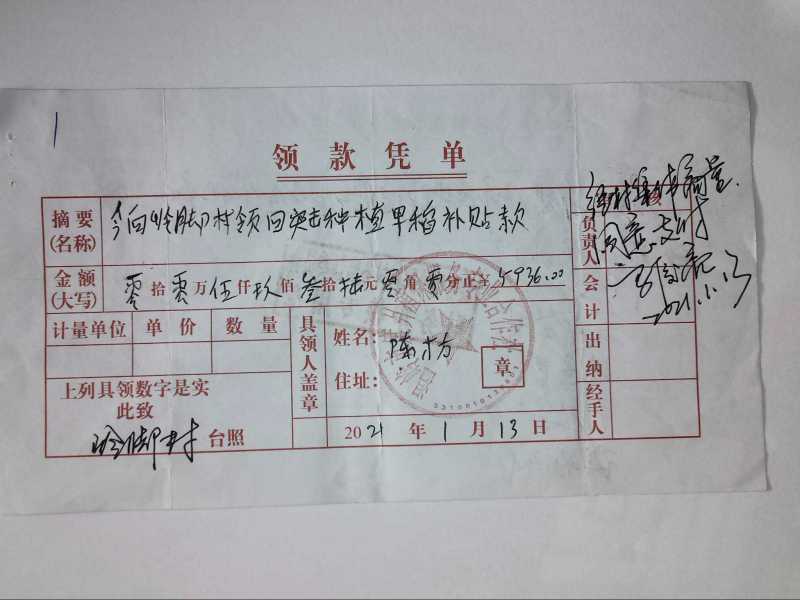 1
领款凭单
摘要(名称) 今向岭脚村领回突击种植早稻补贴款
金额(大写) 零拾零万伍仟玖佰叁拾陆元零角零分止¥5936.00
计量单位 单价 数量
具领人盖章
姓名: 陈方
住址:
章
上列具领数字是实
此致
岭脚村 台照
2021年1月13日
核
负责人
会计
出纳
经手人
同意支付
2021.1.13